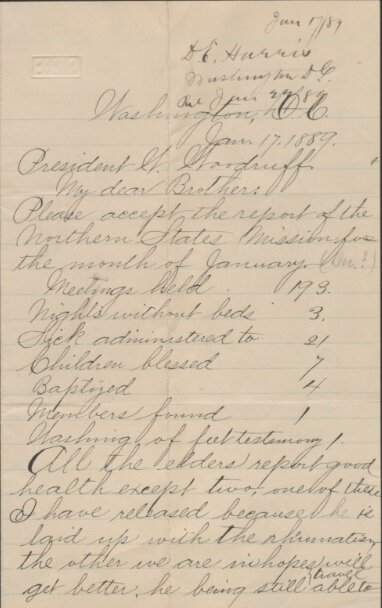 Jan 17/89
D. E. Harris
Washington D.C.
Rec Jan 22/89
Washington, D.C.
Jan. 17. 1889.
President W. Woodruff
My dear Brother:
Please accept the report of the
Northern States Mission for
the month of January. (Dec.?)
Meetings held. 193.
Nights without beds 3.
Sick administered to 21
Children blessed 7
Baptized 4
Members found 1
Washing of feet testimony 1.
All the elders report good
health except two, one of these
I have released because he is
laid up with the rhumatism
the other we are in hopes will
get better, he being still able to
travel